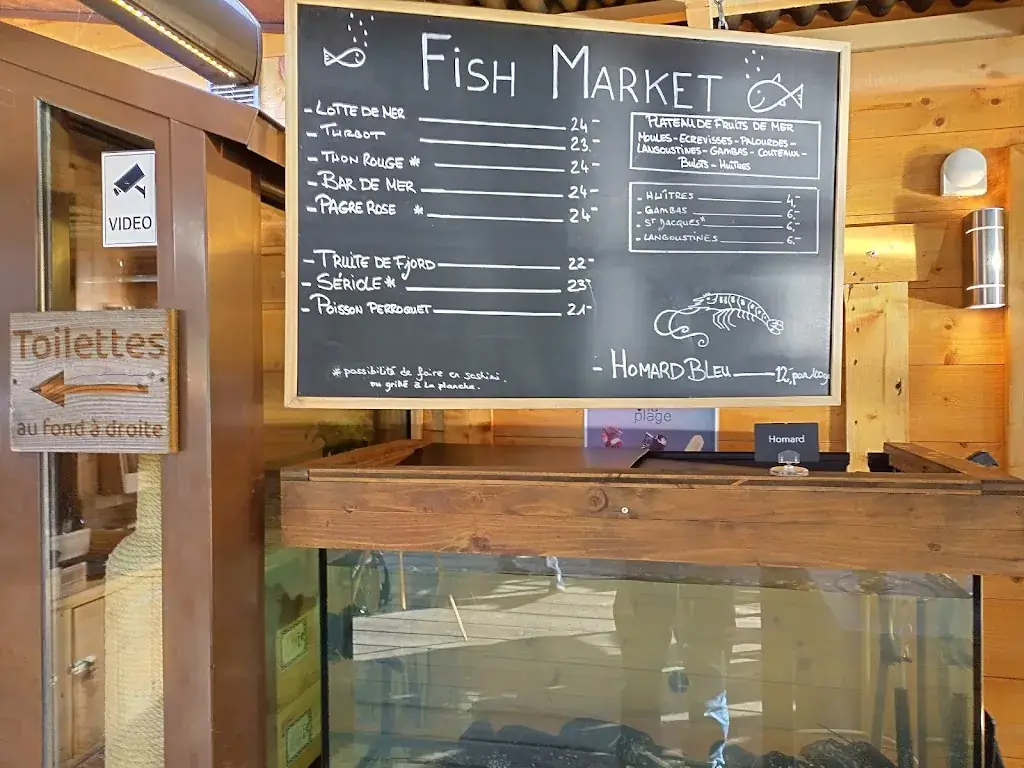 FISH MARKET
- LOTTE DE MER 24.-
- TURBOT 23.-
- THON ROUGE * 24.-
- BAR DE MER 24.-
- PAGRE ROSE * 24.-
- TRUITE DE FJORD 22.-
- SÉRIOLE * 23.-
- POISSON PERROQUET 21.-
* possibilité de faire en sashimi
ou grillé à la plancha.
PLATEAU DE FRUITS DE MER
MOULES - ECREVISSES - PALOURDES -
LANGOUSTINES - GAMBAS - COUTEAUX -
BULOTS - HUÎTRES
- HUÎTRES 4.-
- GAMBAS 6.-
- ST JACQUES * 6.-
- LANGOUSTINES 6.-
- HOMARD BLEU 12.- par 100gr
VIDEO
Toilettes
au fond à droite
plage
Homard